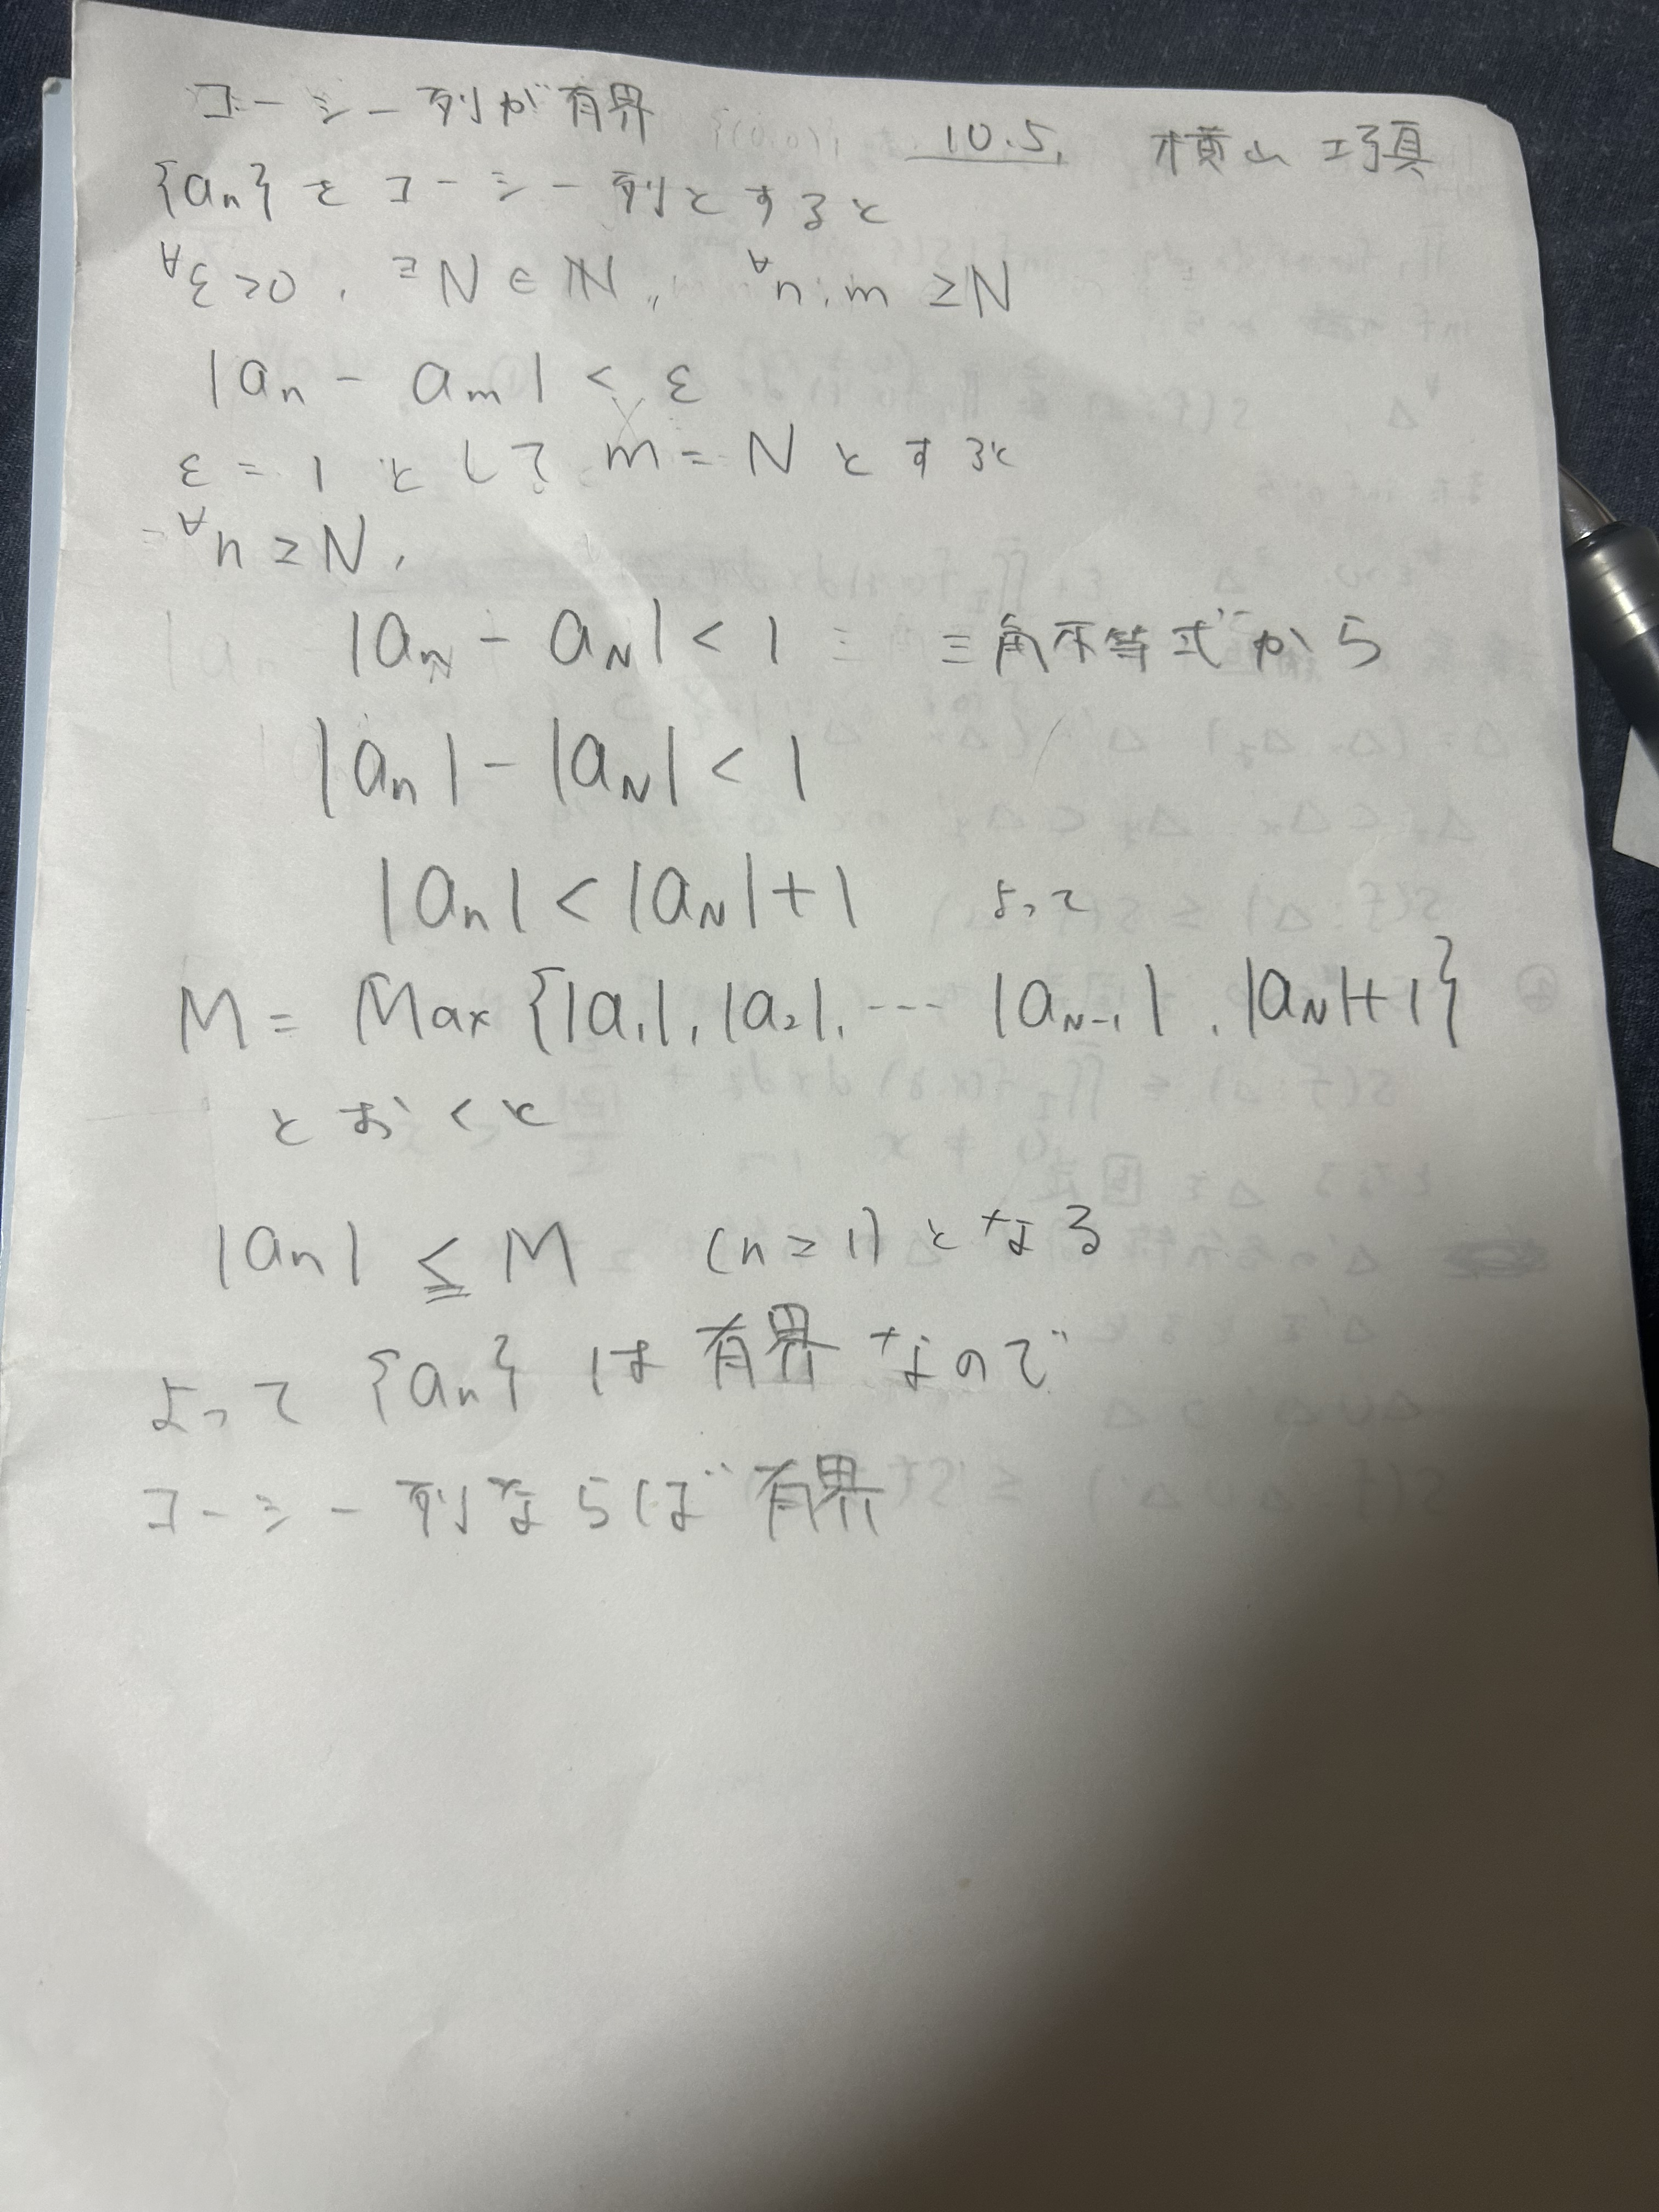 コーシー列が有界
10.5. 横山 巧真
{an} をコーシー列とすると
∀ε>0, ∃N∈ℕ, ∀n,m≥N
|an - am| < ε
ε = 1 として m = N とすると
∀n≥N,
|an - aN| < 1 三角不等式から
|an| - |aN| < 1
|an| < |aN| + 1 よって
M = Max {|a1|, |a2|, ... |aN-1|, |aN|+1}
とおくと
|an| ≦ M (n≥1) となる
よって {an} は有界なので
コーシー列ならば有界